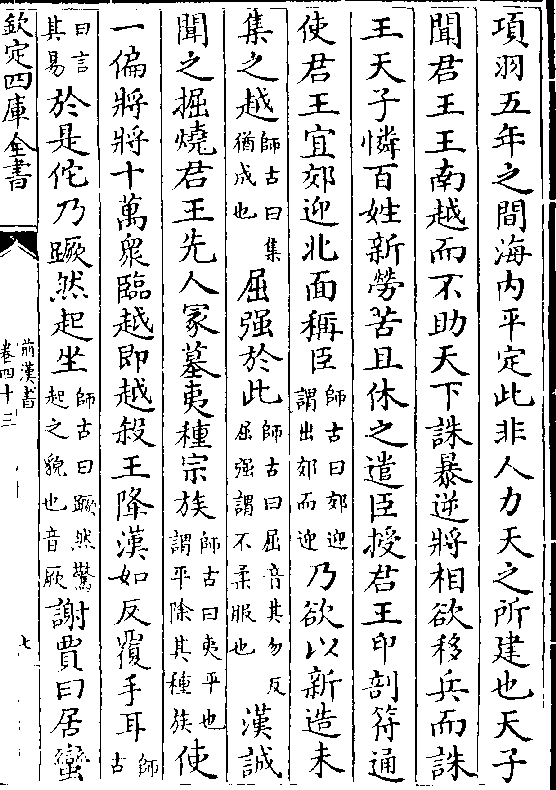 項羽五年之間海内平定此非人力天之所建也天子
聞君王王南越而不助天下誅暴逆將相欲移兵而誅
王天子憐百姓新勞苦且休之遣臣授君王印剖符通
使君王宜郊迎北面稱臣師古曰郊迎謂出郊而迎乃欲以新造未
集之越師古曰集猶成也屈强於此師古曰屈音其勿反屈强謂不柔服也漢誠
聞之掘燒君王先人冢墓夷種宗族師古曰夷平也謂平除其種族使
一偏將將十萬衆臨越即越殺王降漢如反覆手耳師古
曰言其易於是佗乃蹶然起坐師古曰蹶然驚起之貌也音厥謝賈曰居蠻
欽定四庫全書
前漢書
卷四十三
七